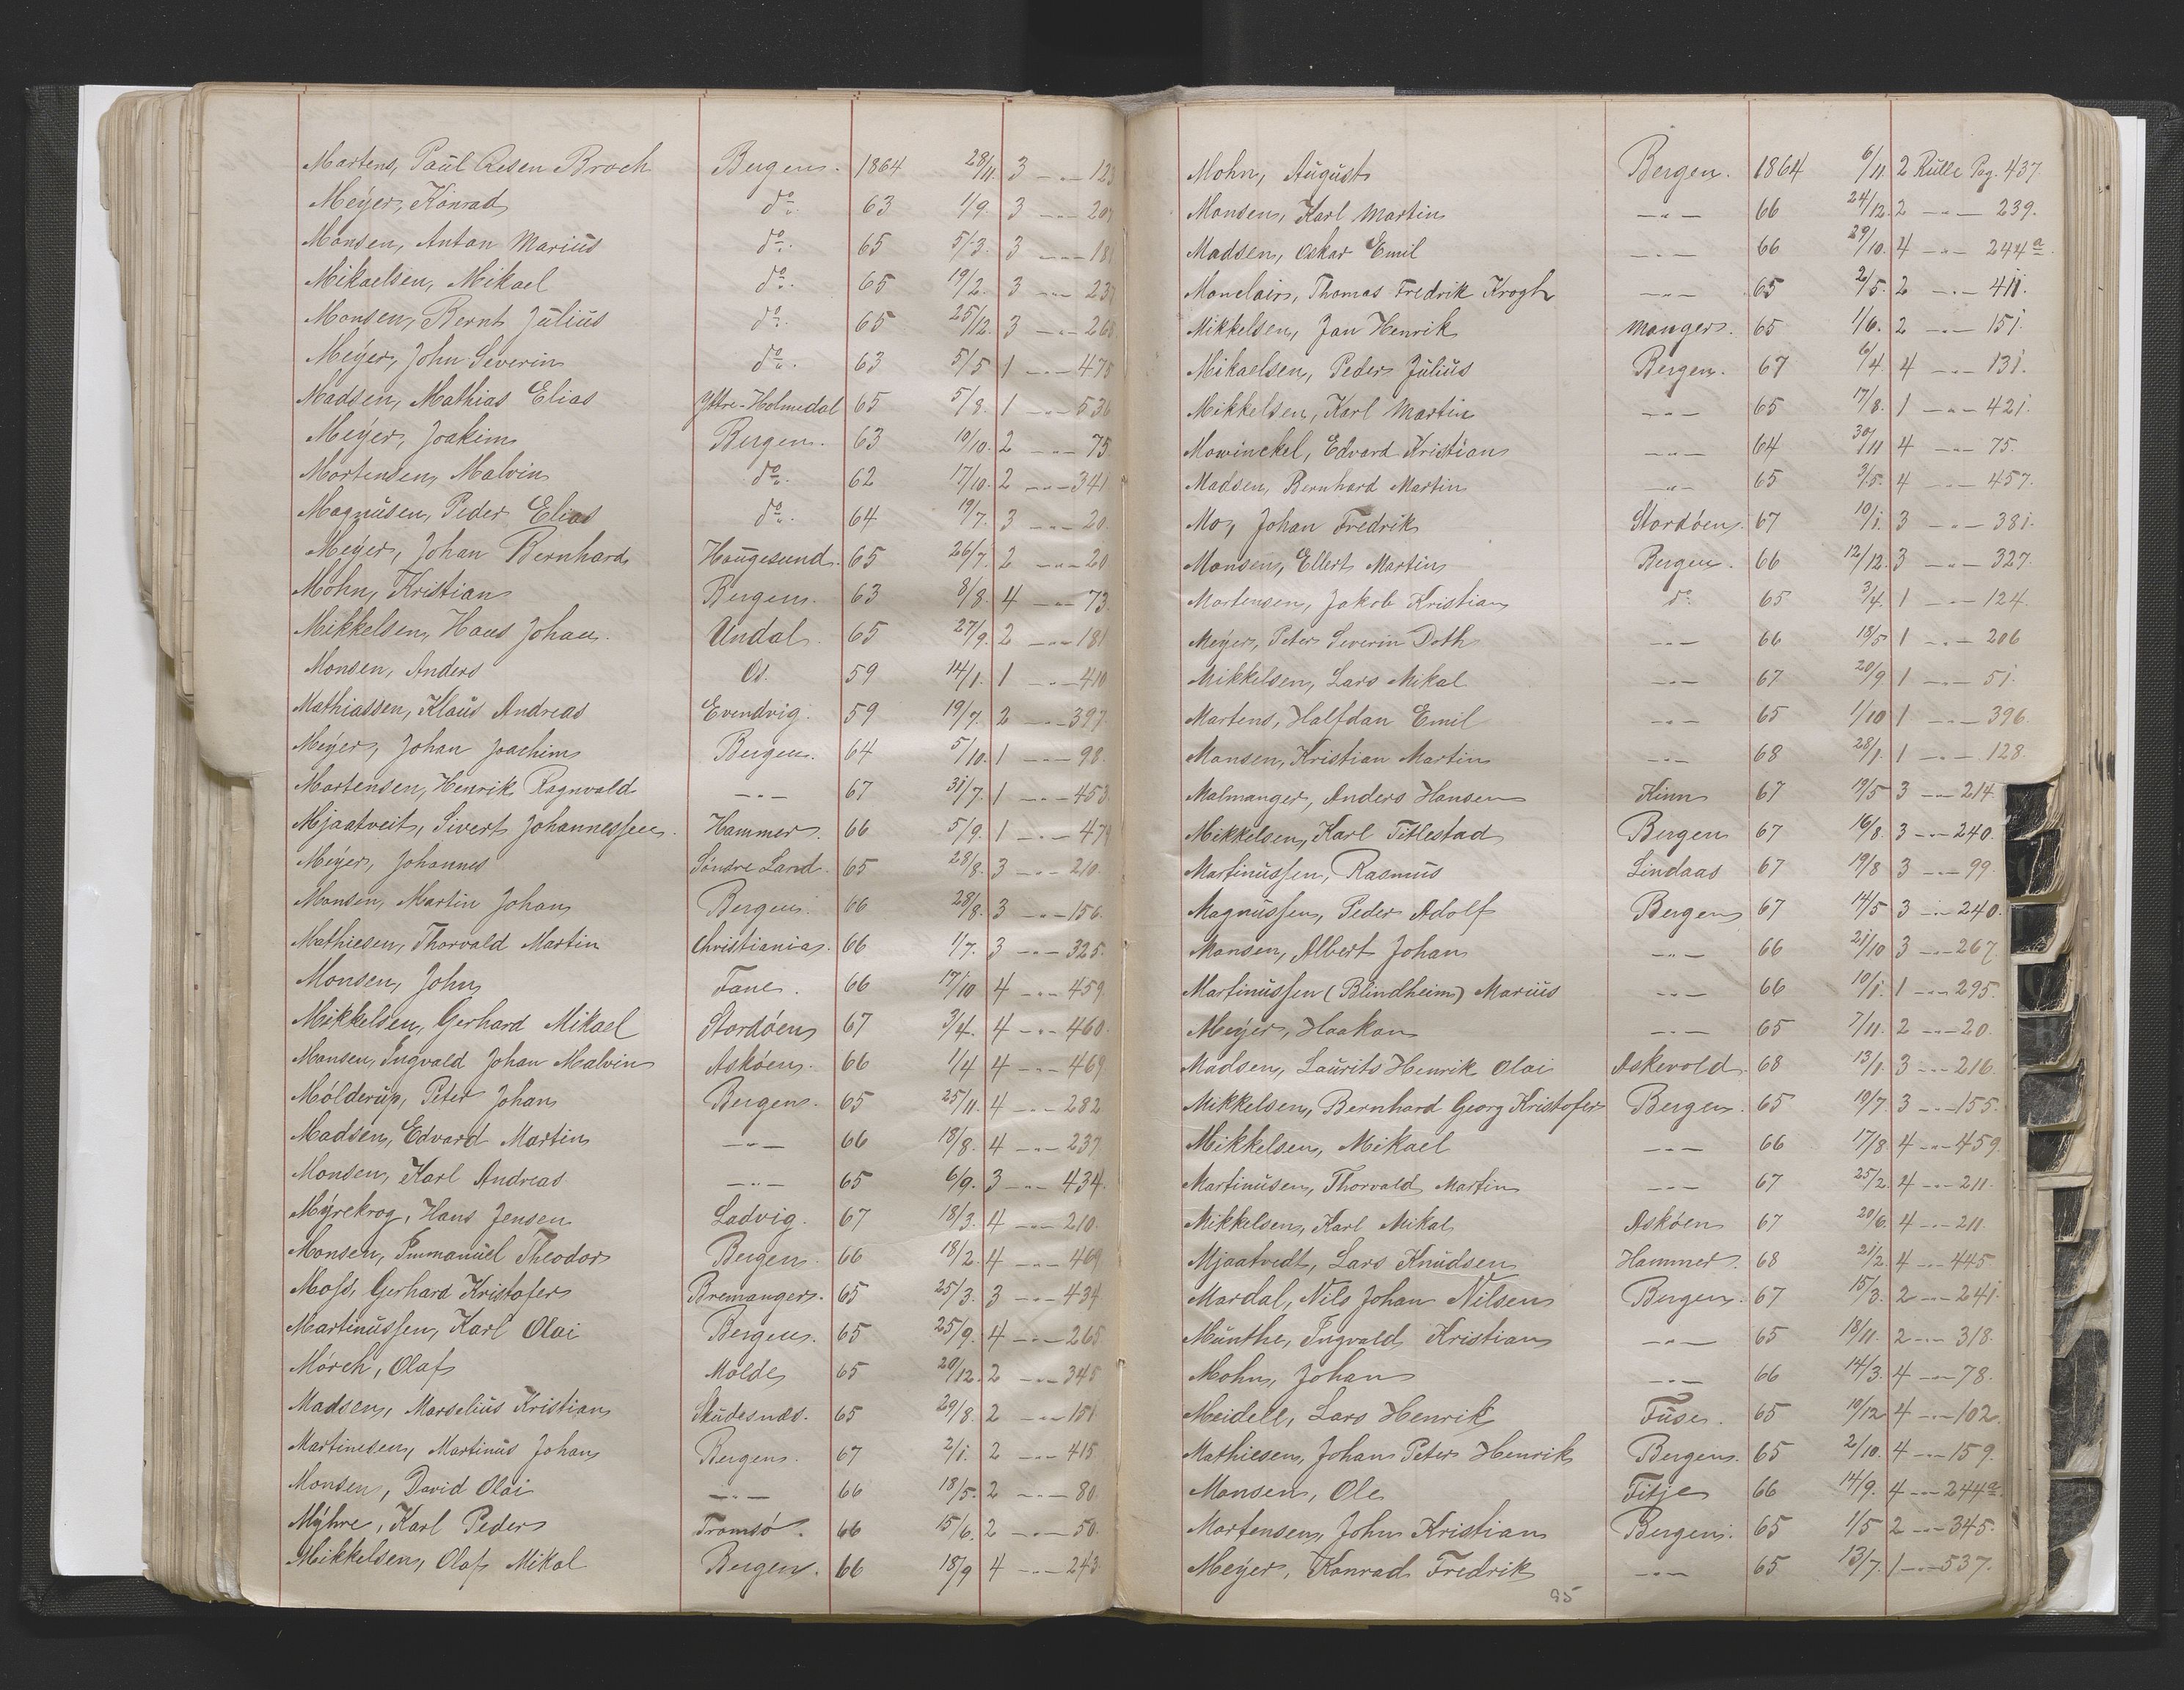 Martens, Paul Resen Broch Bergen. 1864 28/11 3 -"- 123
Meÿer, Konrad do. 63 1/9. 3 -"- 207
Monsen, Anton Marius do. 65 5/3. 3 -"- 181
Mikaelsen, Mikael do. 65 19/2. 3 -"- 237
Monsen, Bernt Julius do. 65 25/12. 3 -"- 268
Meÿer, John Severin do. 63 5/5 1 -"- 475
Madsen, Mathias Elias Yttre-Holmedal 65 5/8. 1 -"- 536
Meÿer, Joakim Bergen. 63 10/10. 2 -"- 75.
Mortensen, Malvin do. 62 17/10. 2 -"- 341
Magnusen, Peder Elias do. 64 19/7. 3 -"- 20.
Meÿer, Johan Bernhard Haugesund. 65 26/7. 2 -"- 20
Mohn, Kristian Bergen. 63 8/8. 4 -"- 73.
Mikkelsen, Hans Johan. Undal. 65 27/9. 2 -"- 181
Monsen, Anders Os. 59 14/1. 1 -"- 410
Mathiassen, Klaus Andreas Evendvig. 59 19/7. 2 -"- 397.
Meÿer, Johan Joachim Bergen. 64 5/10. 1 -"- 98.
Mortensen, Henrik Ragnvald -"- 67 31/7. 1 -"- 453.
Mjaatveit, Sivert Johannessen. Hammer. 66 5/9. 1 -"- 479
Meÿer, Johannes Søndre Land. 65 28/8. 3 -"- 210.
Monsen, Martin Johan Bergen. 66 28/8. 3 -"- 156.
Mathiesen, Thorvald Martin Christiania. 66 1/7. 3 -"- 325.
Monsen, John Fane. 66 17/10 4 -"- 459
Mikkelsen, Gerhard Mikael Stordøen 67 3/4. 4 -"- 460.
Monsen, Ingvald Johan Malvin Askøen. 66 1/4 4 -"- 469.
Mølderup, Peter Johan Bergen. 65 25/11. 4 -"- 282
Madsen, Edvard Martin -"- 66 18/8. 4 -"- 237.
Monsen, Karl Andreas -"- 65 6/9. 3 -"- 434.
Mÿrekrog, Hans Jensen Ladvig. 67 18/3. 4 -"- 210.
Monsen, Immanuel Theodor Bergen. 66 18/2. 4 -"- 469
Moss, Gerhard Kristofer Bremanger. 65 25/3. 3 -"- 434
Martinussen, Karl Olai Bergen. 65 25/9. 4 -"- 265
Mørch, Olaf Molde 65 20/12. 2 -"- 345
Madsen, Marselius Kristian Skudesnæs. 65 29/8. 2 -"- 151
Martinesen, Martinus Johan Bergen. 67 2/1. 2 -"- 415.
Monsen, David Olai -"- 66 18/5. 2 -"- 80.
Mÿhre, Karl Peder Tromsø. 66 15/6. 2 -"- 50.
Mikkelsen, Olaf Mikal Bergen. 66 18/9 4 -"- 243.
Mohn, August Bergen. 1864 6/11. 2 Rulle Pag. 437.
Monsen, Karl Martin -"- 66 24/12. 2 -"- 239.
Madsen, Oskar Emil -"- 66 29/10. 4 -"- 244a
Monclair, Thomas Fredrik Krogh -"- 65 2/5. 2 -"- 411.
Mikkelsen, Jan Henrik Manger. 65 1/6. 2 -"- 151.
Mikaelsen, Peder Julius Bergen. 67 6/4. 4 -"- 131.
Mikkelsen, Karl Martin -"- 65 17/8. 1 -"- 421.
Mowinckel, Edvard Kristian -"- 64 30/11 4 -"- 75.
Madsen, Bernhard Martin -"- 65 3/5. 4 -"- 457.
Mo, Johan Fredrik Stordøen. 67 10/1. 3 -"- 381.
Monsen, Ellert Martin Bergen. 66 12/12. 3 -"- 327.
Mortensen, Jakob Kristian do 65 3/4. 1 -"- 124.
Meÿer, Peter Severin Doth -"- 66 18/5 1 -"- 206
Mikkelsen, Lars Mikal -"- 67 20/9. 1 -"- 51.
Martens, Halfdan Emil -"- 65 1/10 1 -"- 396.
Monsen, Kristian Martin -"- 68 28/1. 1 -"- 128.
Malmanger, Anders Hansen Kinn 67 19/5 3 -"- 214.
Mikkelsen, Karl Titlestad Bergen 67 16/8. 3 -"- 240.
Martinussen, Rasmus Lindaas 67 19/8 3 -"- 99.
Magnussen, Peder Adolf Bergen 67 14/5 3 -"- 240.
Monsen, Albert Johan -"- 66 21/10 3 -"- 267.
Martinussen (Blindheim) Marius -"- 66 10/1. 1 -"- 295.
Meÿer, Haakon -"- 65 7/11. 2 -"- 20.
Madsen, Laurits Henrik Olai Askevold. 68 13/1. 3 -"- 216.
Mikkelsen, Bernhard Georg Kristofer Bergen. 65 19/7. 3 -"- 155.
Mikkelsen, Mikael -"- 66 17/8 4 -"- 459.
Martinusen, Thorvald Martin -"- 67 25/2. 4 -"- 211.
Mikkelsen, Karl Mikal Askøen 67 20/6. 4 -"- 211.
Mjaatvedt, Lars Knudsen Hammer. 68 21/2. 4 -"- 445
Mardal, Nils Johan Nilsen Bergen. 67 15/3. 2 -"- 241.
Munthe, Ingvald Kristian -"- 65 18/11. 2 -"- 318.
Mohn, Johan -"- 66 14/3. 4 -"- 78.
Meidell, Lars Henrik Fuse. 65 10/12 4 -"- 102.
Mathiesen, Johan Peter Henrik Bergen. 65 2/10. 4 -"- 159.
Monsen, Ole Fitje 66 14/9. 4 -"- 244a.
Mortensen, John Kristian Bergen. 65 1/5 2 -"- 345.
Meÿer, Konrad Fredrik -"- 65 13/7. 1 -"- 537.
95